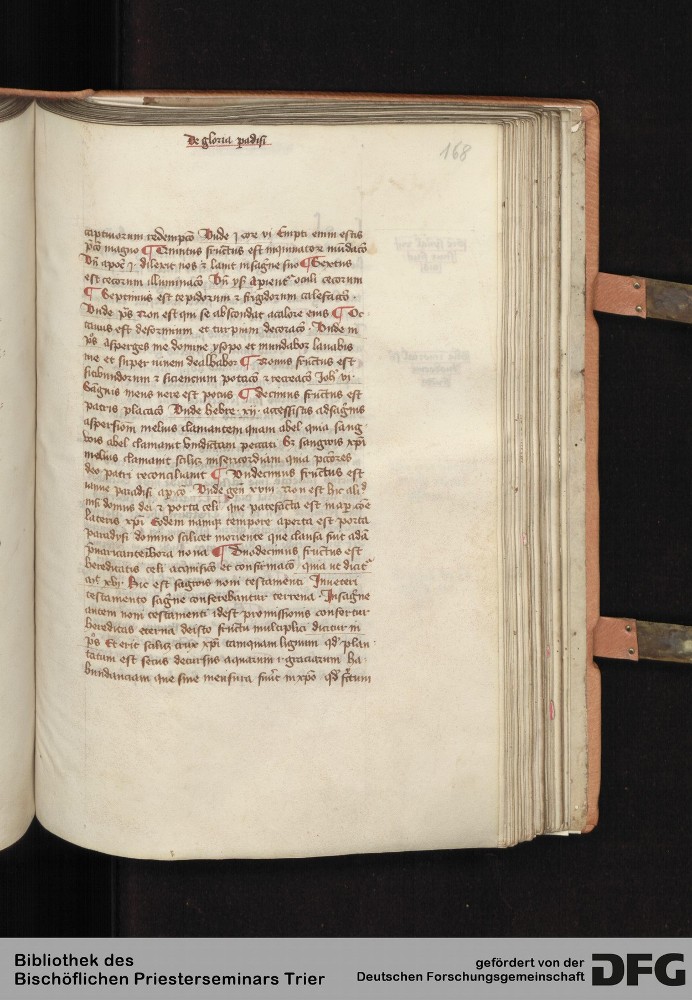 De gloria padisi
168
captiuorum redempcõ Vnde j cor vi Empti enim estis
p̃cio magno ¶ Quintus fructus est inquinatorum mũdacõ
Vñ apoc̃ j · dilexit nos ⁊ lauit in sãgne suo ¶ Sextus
est cecorum illuminacõ Vñ ys̃ Apient̃ oculi cecorum
¶ Septimus est tepidorum ⁊ frigidorum calefactõ ·
Vnde p̃s Non est qui se abscondat acalore eius ¶ Oc
tauus est deformium et turpium decoracõ · Vnde in
p̃s Asperges me domine ysopo et mundabor lauabis
me et super niuem dealbabor ¶ Nonus fructus est
sitibundorum ⁊ siciencium potacõ ⁊ recreacõ Joh̃ vi ·
Sãgnis meus vere est potus ¶ Decimus fructus est
patris placacõ Vnde hebre · xij · accessistis ad sãgnis
aspersionem melius clamantem quam abel quia sang
wis abel clamauit vindictam peccati Sz sangwis xp̃i
melius clamauit scilicz misericordiam quia pctõres
deo patri reconciliauit ¶ Vndecimus fructus est
ianue paradisi apcõ Vnde gen̄ xxviij Non est hic aliđ
nisi domus dei ⁊ porta celi que patefacta est in apcõe
lateris xp̃i Eodem namqz tempore aperta est porta
paradysi domino scilicet moriente que clausa fuit adã
p̃uaricante hora nona ¶ Duodecimus fructus est
hereditatis celi acquisicõ et confirmacõ quia ut dicit̃
mͭ xvj · Hic est sagwis noui testamenti In veteri
testamento sãgne conferebantur terrena · In sãgne
autem noui testamenti idest promissionis confertur
hereditas eterna de isto fructu multiplici dicitur in
p̃s Et erit scilicz crux xp̃i tamquam lignum qđ plan
tatum est secus decursus aquarum i· graciarum ha
bundanciam que sine mensura fuit in xp̃o qđ fc̃tum
Bibliothek des
Bischöflichen Priesterseminars Trier
gefördert von der
Deutschen Forschungsgemeinschaft
DFG